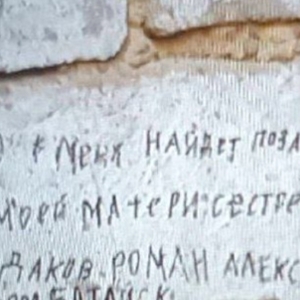 Меня НАЙДЕТ ПОЗА
МОЕЙ МАТЕРИ: СЕСТРЕ
ДАКОВ. РОМАН АЛЕКС
БАТАЙСК.